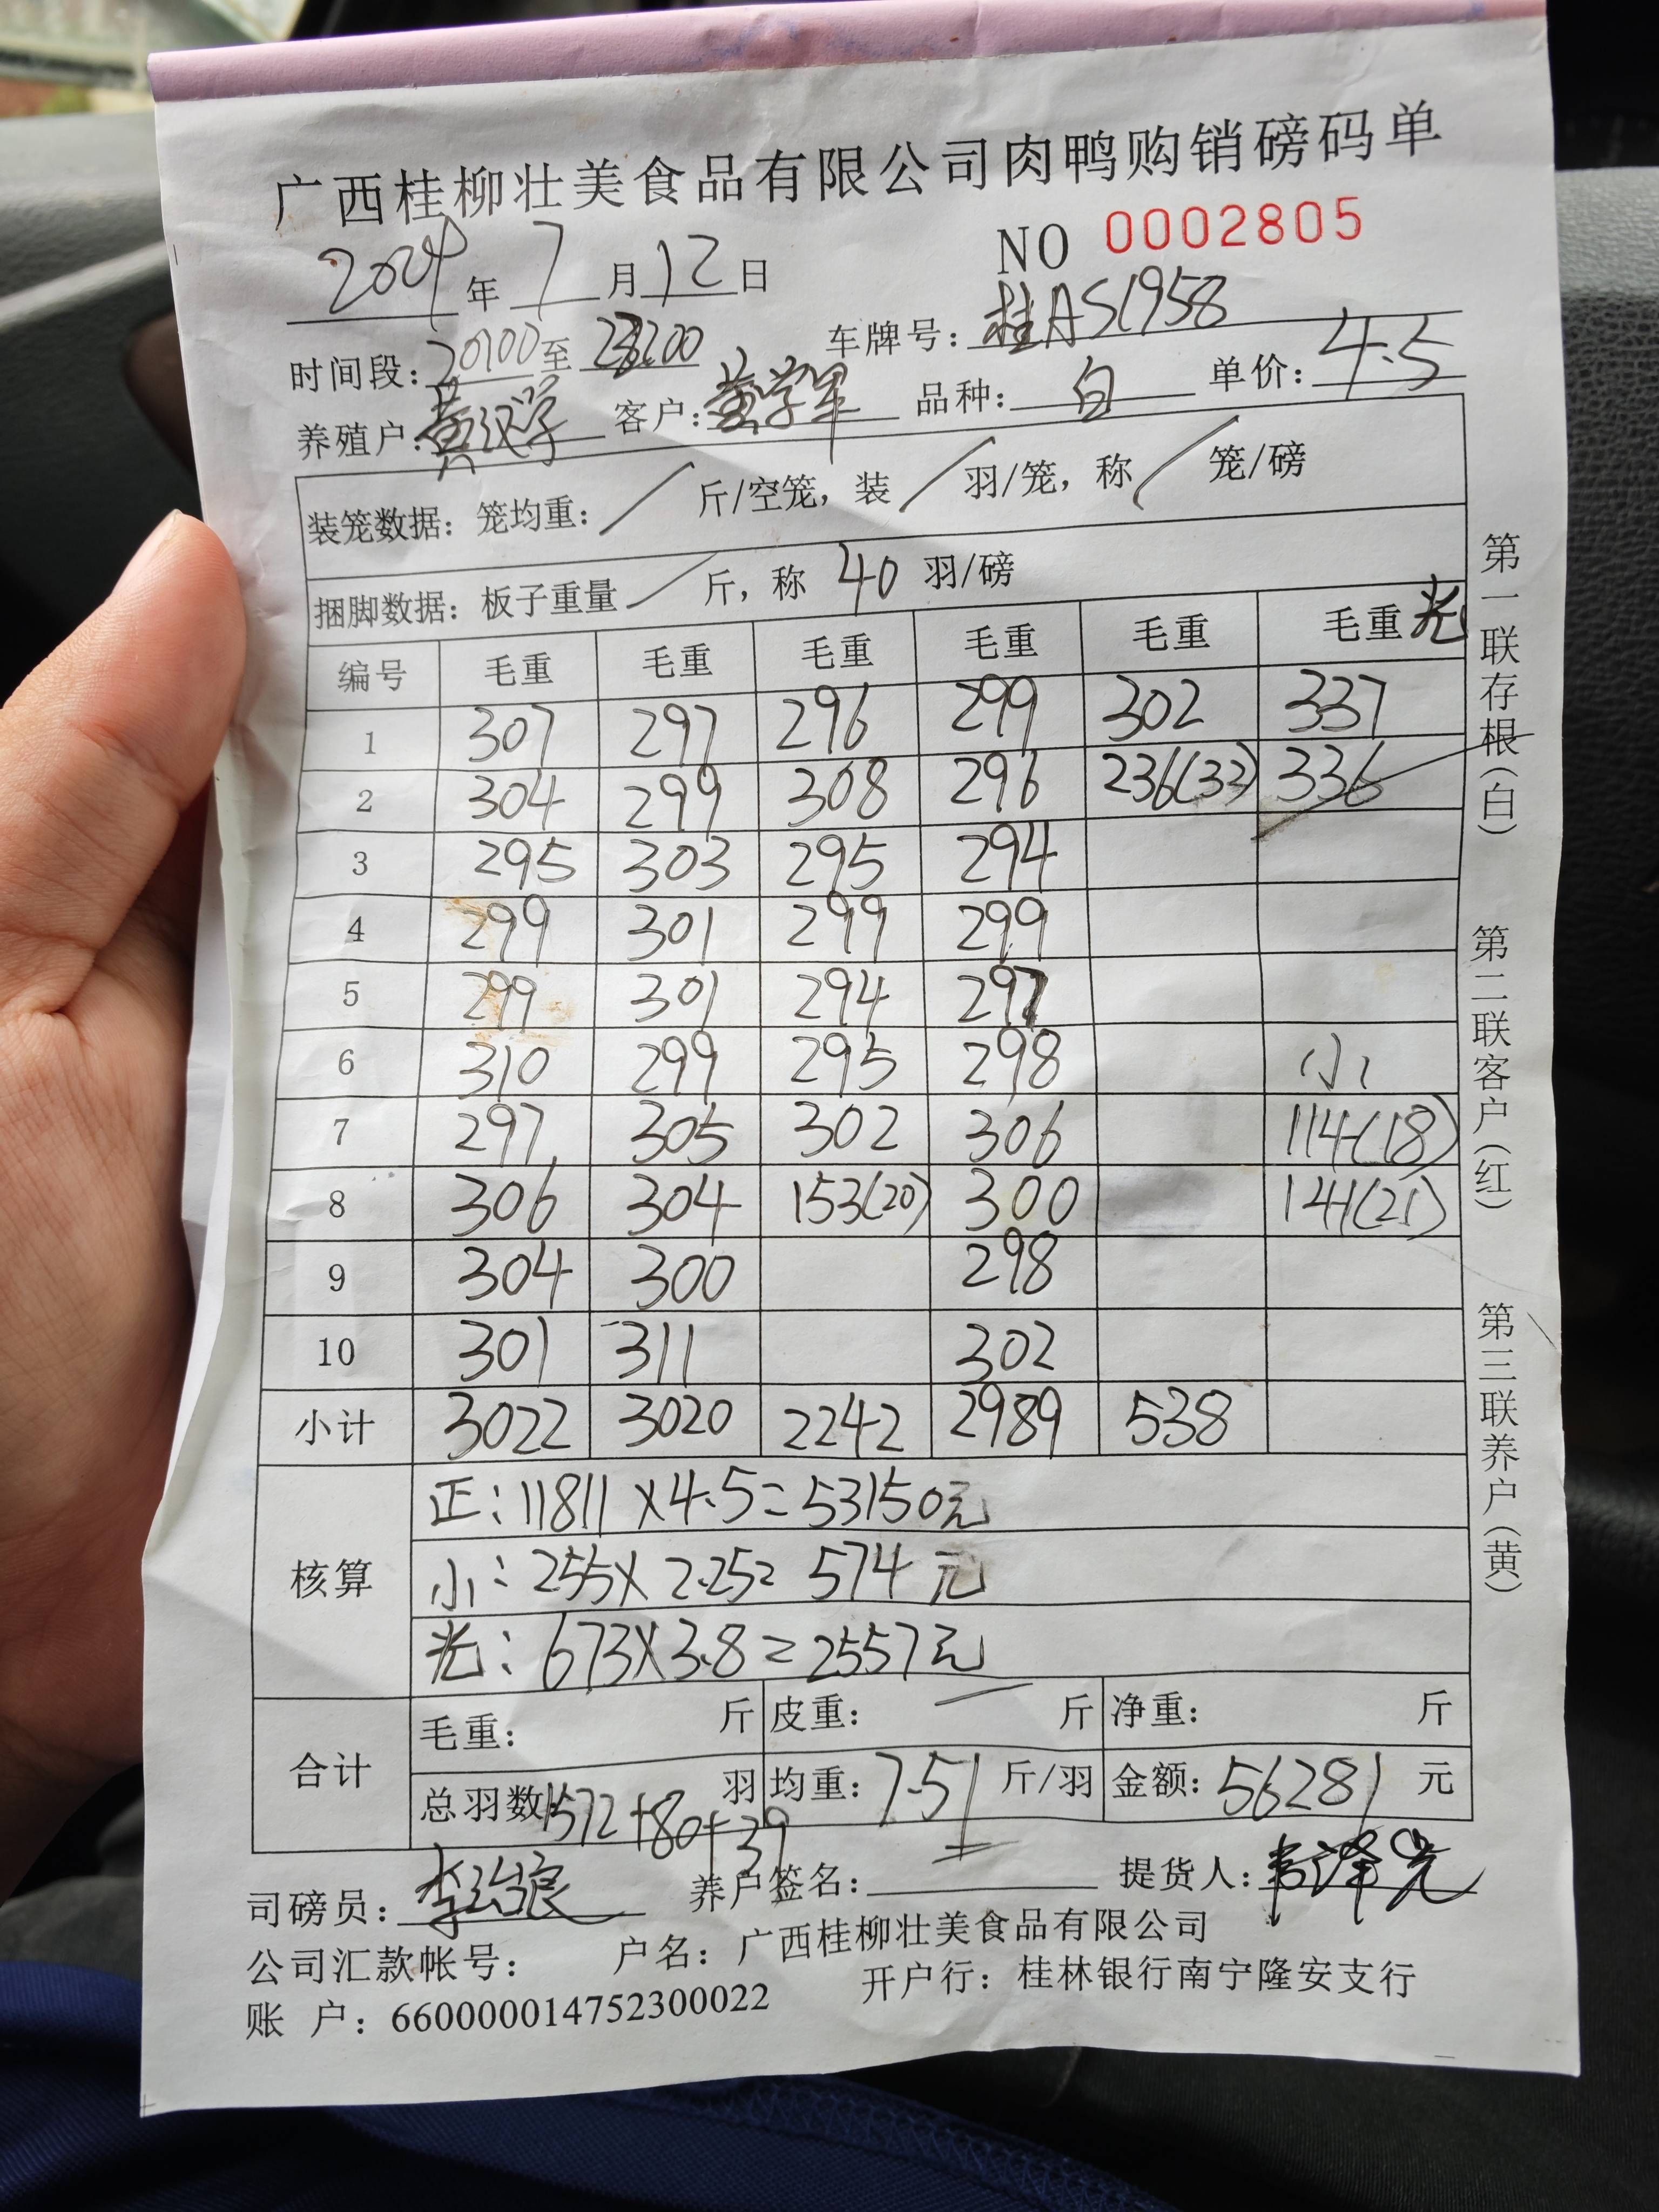 广西桂柳壮美食品有限公司肉鸭购销磅码单
2024年7月12日 NO 0002805
时间段：20:00至23:00 车牌号：桂AS1958
养殖户：黄汉学 客户：黄学军 品种：白 单价：4.5
装笼数据：笼均重：/ 斤/空笼，装 / 羽/笼，称 / 笼/磅
捆脚数据：板子重量 / 斤，称 40 羽/磅
编号 毛重 毛重 毛重 毛重 毛重 毛重光
1 307 297 296 299 302 337
2 304 299 308 296 236(32) 336
3 295 303 295 294
4 299 301 299 299
5 299 301 294 297
6 310 299 295 298 小
7 297 305 302 306 114(18)
8 306 304 153(20) 300 141(21)
9 304 300 298
10 301 311 302
小计 3022 3020 2242 2989 538
核算
正：11811×4.5=53150元
小：255×2.25=574元
光：673×3.8=2557元
合计
毛重： 斤 皮重： — 斤 净重： 斤
总羽数：1572+80+39 羽 均重：7.51 斤/羽 金额：56281 元
司磅员： 养户签名： 提货人：韦泽光
公司汇款帐号： 户名：广西桂柳壮美食品有限公司
账 户：660000014752300022 开户行：桂林银行南宁隆安支行
第一联存根（白） 第二联客户（红） 第三联养户（黄）